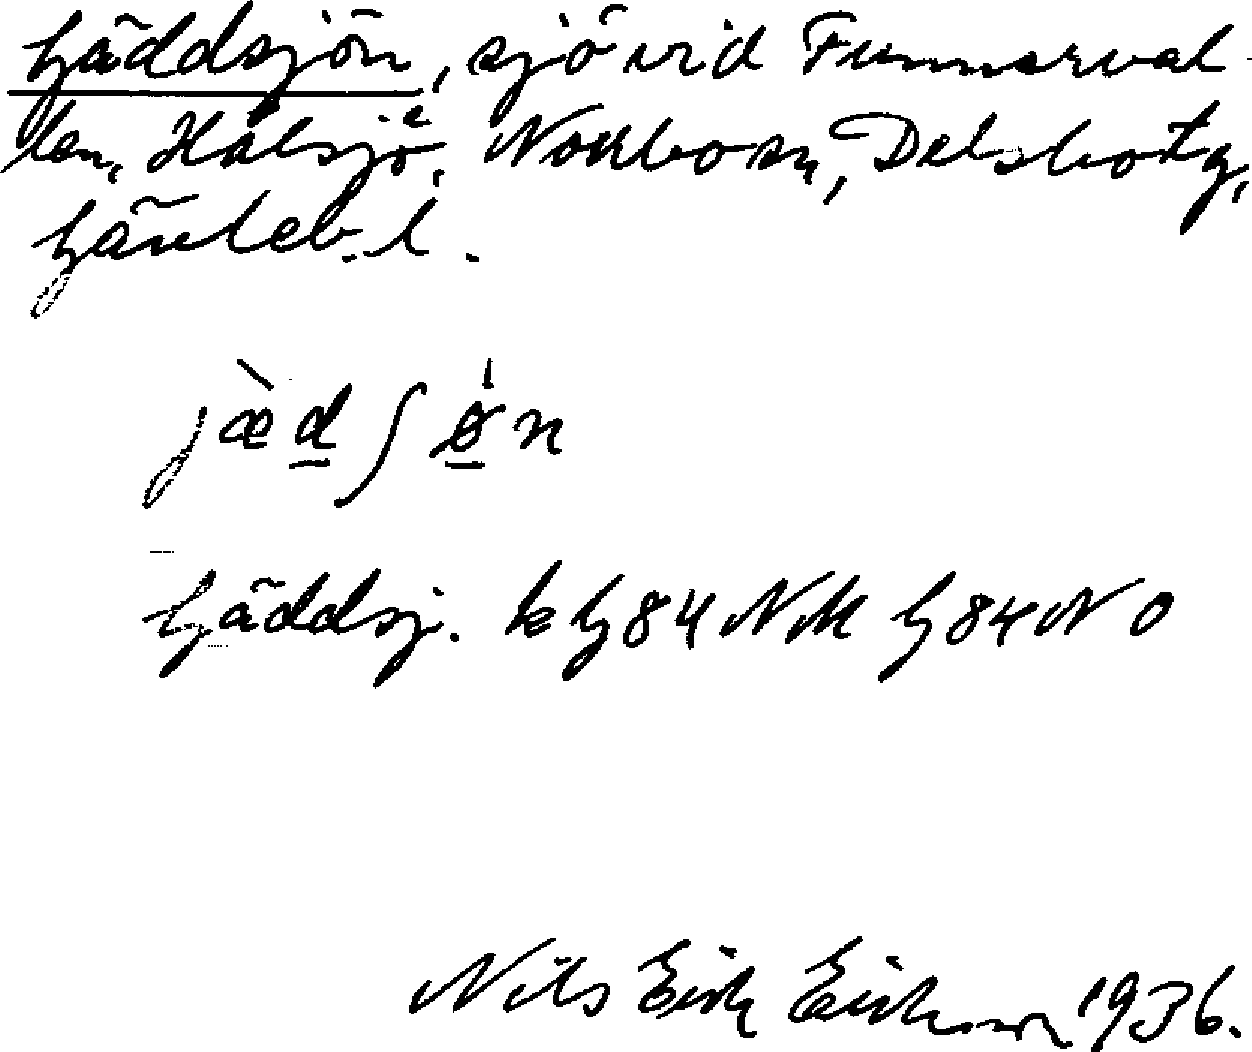 Gäddsjön, sjö vid Funnarval-
len, Hålsjö, Norrbo sn, Delsbo tg,
Gävleb. l.
jæd∫øn
Gäddsj. k G84 NV G84 NO
Nils Erik Erikson 1936.